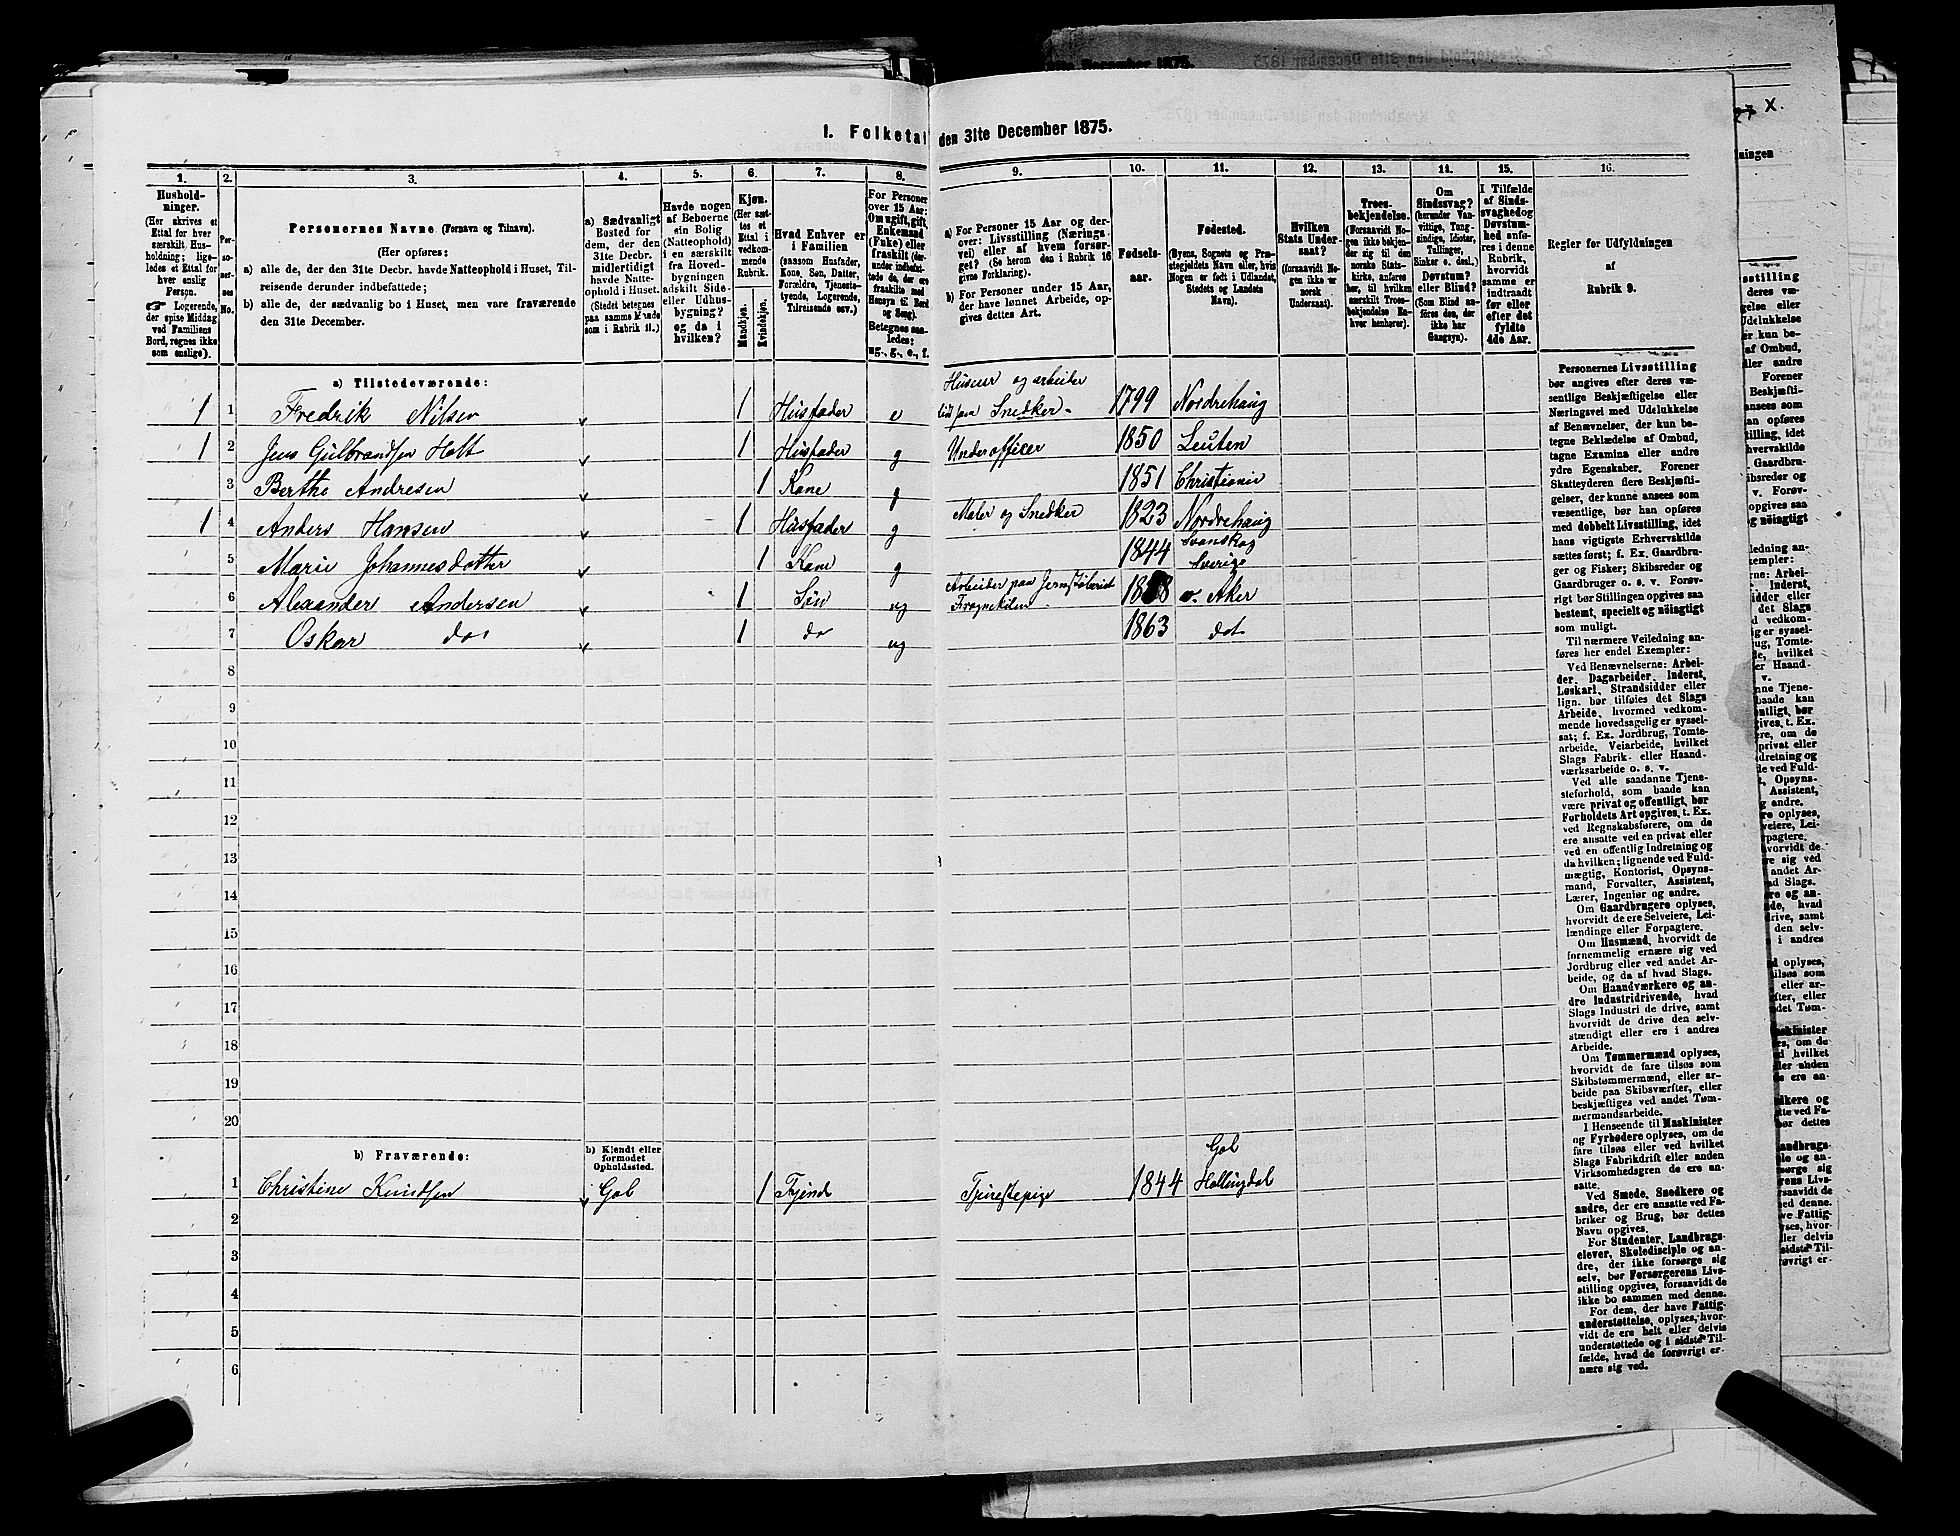 1. Folketal den 31te December 1875.
1.
2.
3.
4.
5.
6.
7.
8.
9.
10.
11.
12.
13.
14.
15.
16.
Hushold-
ninger.
(Her skrives et
Ettal for hver
særskilt Hus-
holdning; lige-
ledes et Ettal for
hver enslig
Person.
☞ Logerende,
der spise Middag
ved Familiens
Bord, regnes ikke
som enslige).
Per-
so-
ner-
nes
No.
Personernes Navne (Fornavn og Tilnavn).
(Her opføres:
a) alle de, der den 31te Decbr. havde Natteophold i Huset, Til-
reisende derunder indbefattede;
b) alle de, der sædvanlig bo i Huset, men vare fraværende
den 31te December.
a) Sædvanligt
Bosted for
dem, der den
31te Decbr.
midlertidigt
havde Natte-
ophold i Huset.
(Stedet betegnes
paa samme Maade
som i Rubrik 11.)
Havde nogen
af Beboerne
sin Bolig
(Natteophold)
i en særskilt
fra Hoved-
bygningen
adskilt Side-
eller Udhus-
bygning?
og da i
hvilken?
Kjøn.
(Her sæt-
tes et
Ettal i
vedkom-
mende
Rubrik.
Mandkjøn.
Kvindekjøn.
Hvad Enhver er
i Familien
(saasom Husfader,
Kone, Søn, Datter,
Forældre, Tjeneste-
tyende, Logerende,
Tilreisende osv.)
For Personer
over 15 Aar:
Om ugift, gift,
Enkemand
(Enke) eller
fraskilt (der-
under indbefat-
tede de, der ere
fraskilte med
Hensyn til Bord
og Seng).
Betegnes saa-
ledes:
ug., g., e., f.
a) For Personer 15 Aar og der-
over: Livsstilling (Nærings-
vei) eller af hvem forsør-
get? (Se herom den i Rubrik 16
givne Forklaring).
b) For Personer under 15 Aar,
der have lønnet Arbeide, op-
gives dettes Art.
Fødsels-
aar.
Fødested.
(Byens, Sognets og Præ-
stegjeldets Navn eller, hvis
Nogen er født i Udlandet,
Stedets og Landets
Navn).
Hvilken
Stats Under-
saat?
(forsaavidt No-
gen ikke er
norsk
Undersaat).
Troes-
bekjendelse.
(Forsaavidt No-
gen ikke bekjen-
der sig til den
norske Stats-
kirke, anføres
her, til hvilken
særskilt Troes-
bekjendelse En-
hver henhører).
Om
Sindssvag?
(herunder Van-
vittige, Tung-
sindige, Idioter,
Tullinger,
Sinker o. desl.)
Døvstum?
eller Blind?
(Som Blind an-
føres den, der
ikke har
Gangsyn).
I Tilfælde
af Sinds-
svaghed og
Døvstum-
hed anfø-
res i denne
Rubrik,
hvorvidt
samme er
indtraadt
før eller
efter det
fyldte
4de Aar.
Regler for Udfyldningen
af
Rubrik 9.
a) Tilstedeværende:
1 1 Fredrik Nilsen 1 Husfader e Huseier og arbeider Snedker 1799 Nordrehaug
1 2 Jens Gulbrandsen Holt 1 Husfader g Underofficer 1850 Leuten
3 Berthe Andresen 1 Kone g 1851 Christiania
1 4 Anders Hansen 1 Husfader g Maler og Snedker 1823 Nordrehaug
5 Marie Johannesdatter 1 Kone g 1844 Svanskog Sverige
6 Alexander Andersen 1 Søn ug Arbeider paa Frognerkilen v. Aker
7 Oskar do 1 do ug 1863 do
8
9
10
11
12
13
14
15
16
17
18
19
20
b) Fraværende:
b) Kjendt eller
formodet
Opholdssted.
1 Christine Knudsen Gol 1 Tjende Tjenestepige 1844 Gol Hallingdal
2
3
4
5
6
Personernes Livsstilling
bør angives efter deres væ-
sentlige Beskjæftigelse eller
Næringsvei med Udelukkelse
af Benævnelser, der kun be-
tegne Beklædelse af Ombud,
tagne Examina eller andre
ydre Egenskaber. Forener
Skatteyderen flere Beskjæfti-
gelser, der kunne ansees som
væsentlige, bør han opføres
med dobbelt Livsstilling, idet
hans vigtigste Erhvervskilde
sættes først; f. Ex. Gaardbru-
ger og Fisker; Skibsreder og
Gaardbruger o. s. v. Forøv-
rigt bør Stillingen opgives saa
bestemt, specielt og nøiagtigt
som muligt.
Til nærmere Veiledning an-
føres her endel Exempler:
Ved Benævnelserne: Arbei-
der, Dagarbeider, Inderst,
Løskarl, Strandsidder eller
lign. bør tilføies det Slags
Arbeide, hvormed vedkom-
mende hovedsagelig er syssel-
sat; f. Ex. Jordbrug, Tomte-
arbeide, Veiarbeide, hvilket
Slags Fabrik- eller Haand-
værksarbeide o. s. v.
Ved alle saadanne Tjene-
steforhold, som baade kan
være privat og offentligt, bør
Forholdets Art opgives, t. Ex.
ved Regnskabsførere, om de
ere ansatte ved en privat eller
ved en offentlig Indretning og
da hvilken; lignende ved Fuld-
mægtig, Kontorist, Opsyns-
mand, Forvalter, Assistent,
Lærer, Ingeniør og andre.
Om Gaardbrugere oplyses,
hvorvidt de ere Selveiere, Lei-
lændinge eller Forpagtere.
Om Husmænd, hvorvidt de
fornemmelig ernære sig ved
Jordbrug eller ved andet Ar-
beide, og da af hvad Slags.
Om Haandværkere og an-
dre Industridrivende, hvad
Slags Industri de drive, samt
hvorvidt de drive den selv-
stændigt eller ere i andres
Arbeide.
Om Tømmermænd oplyses,
hvorvidt de fare tilsøs som
Skibstømmermænd, eller ar-
beide paa Skibsværfter, eller
beskjæftiges ved andet Tøm-
mermandsarbeide.
I Henseende til Maskinister
og Fyrbødere oplyses, om de
fare tilsøs eller ved hvilket
Slags Fabrikdrift eller anden
Virksomhedsgren de ere an-
satte.
Ved Smede, Snedkere og
andre, der ere ansatte ved Fa-
briker og Brug, bør dettes
Navn opgives.
For Studenter, Landbrugs-
elever, Skoledisciple og an-
dre, der ikke forsørge sig
selv, bør Forsørgerens Livs-
stilling opgives, forsaavidt de
ikke bo sammen med denne.
For dem, der have Fattig-
understøttelse, oplyses, hvor-
vidt de ere helt eller delvis
understøttede og i sidste Til-
fælde, hvad de forøvrigt er-
nære sig ved.